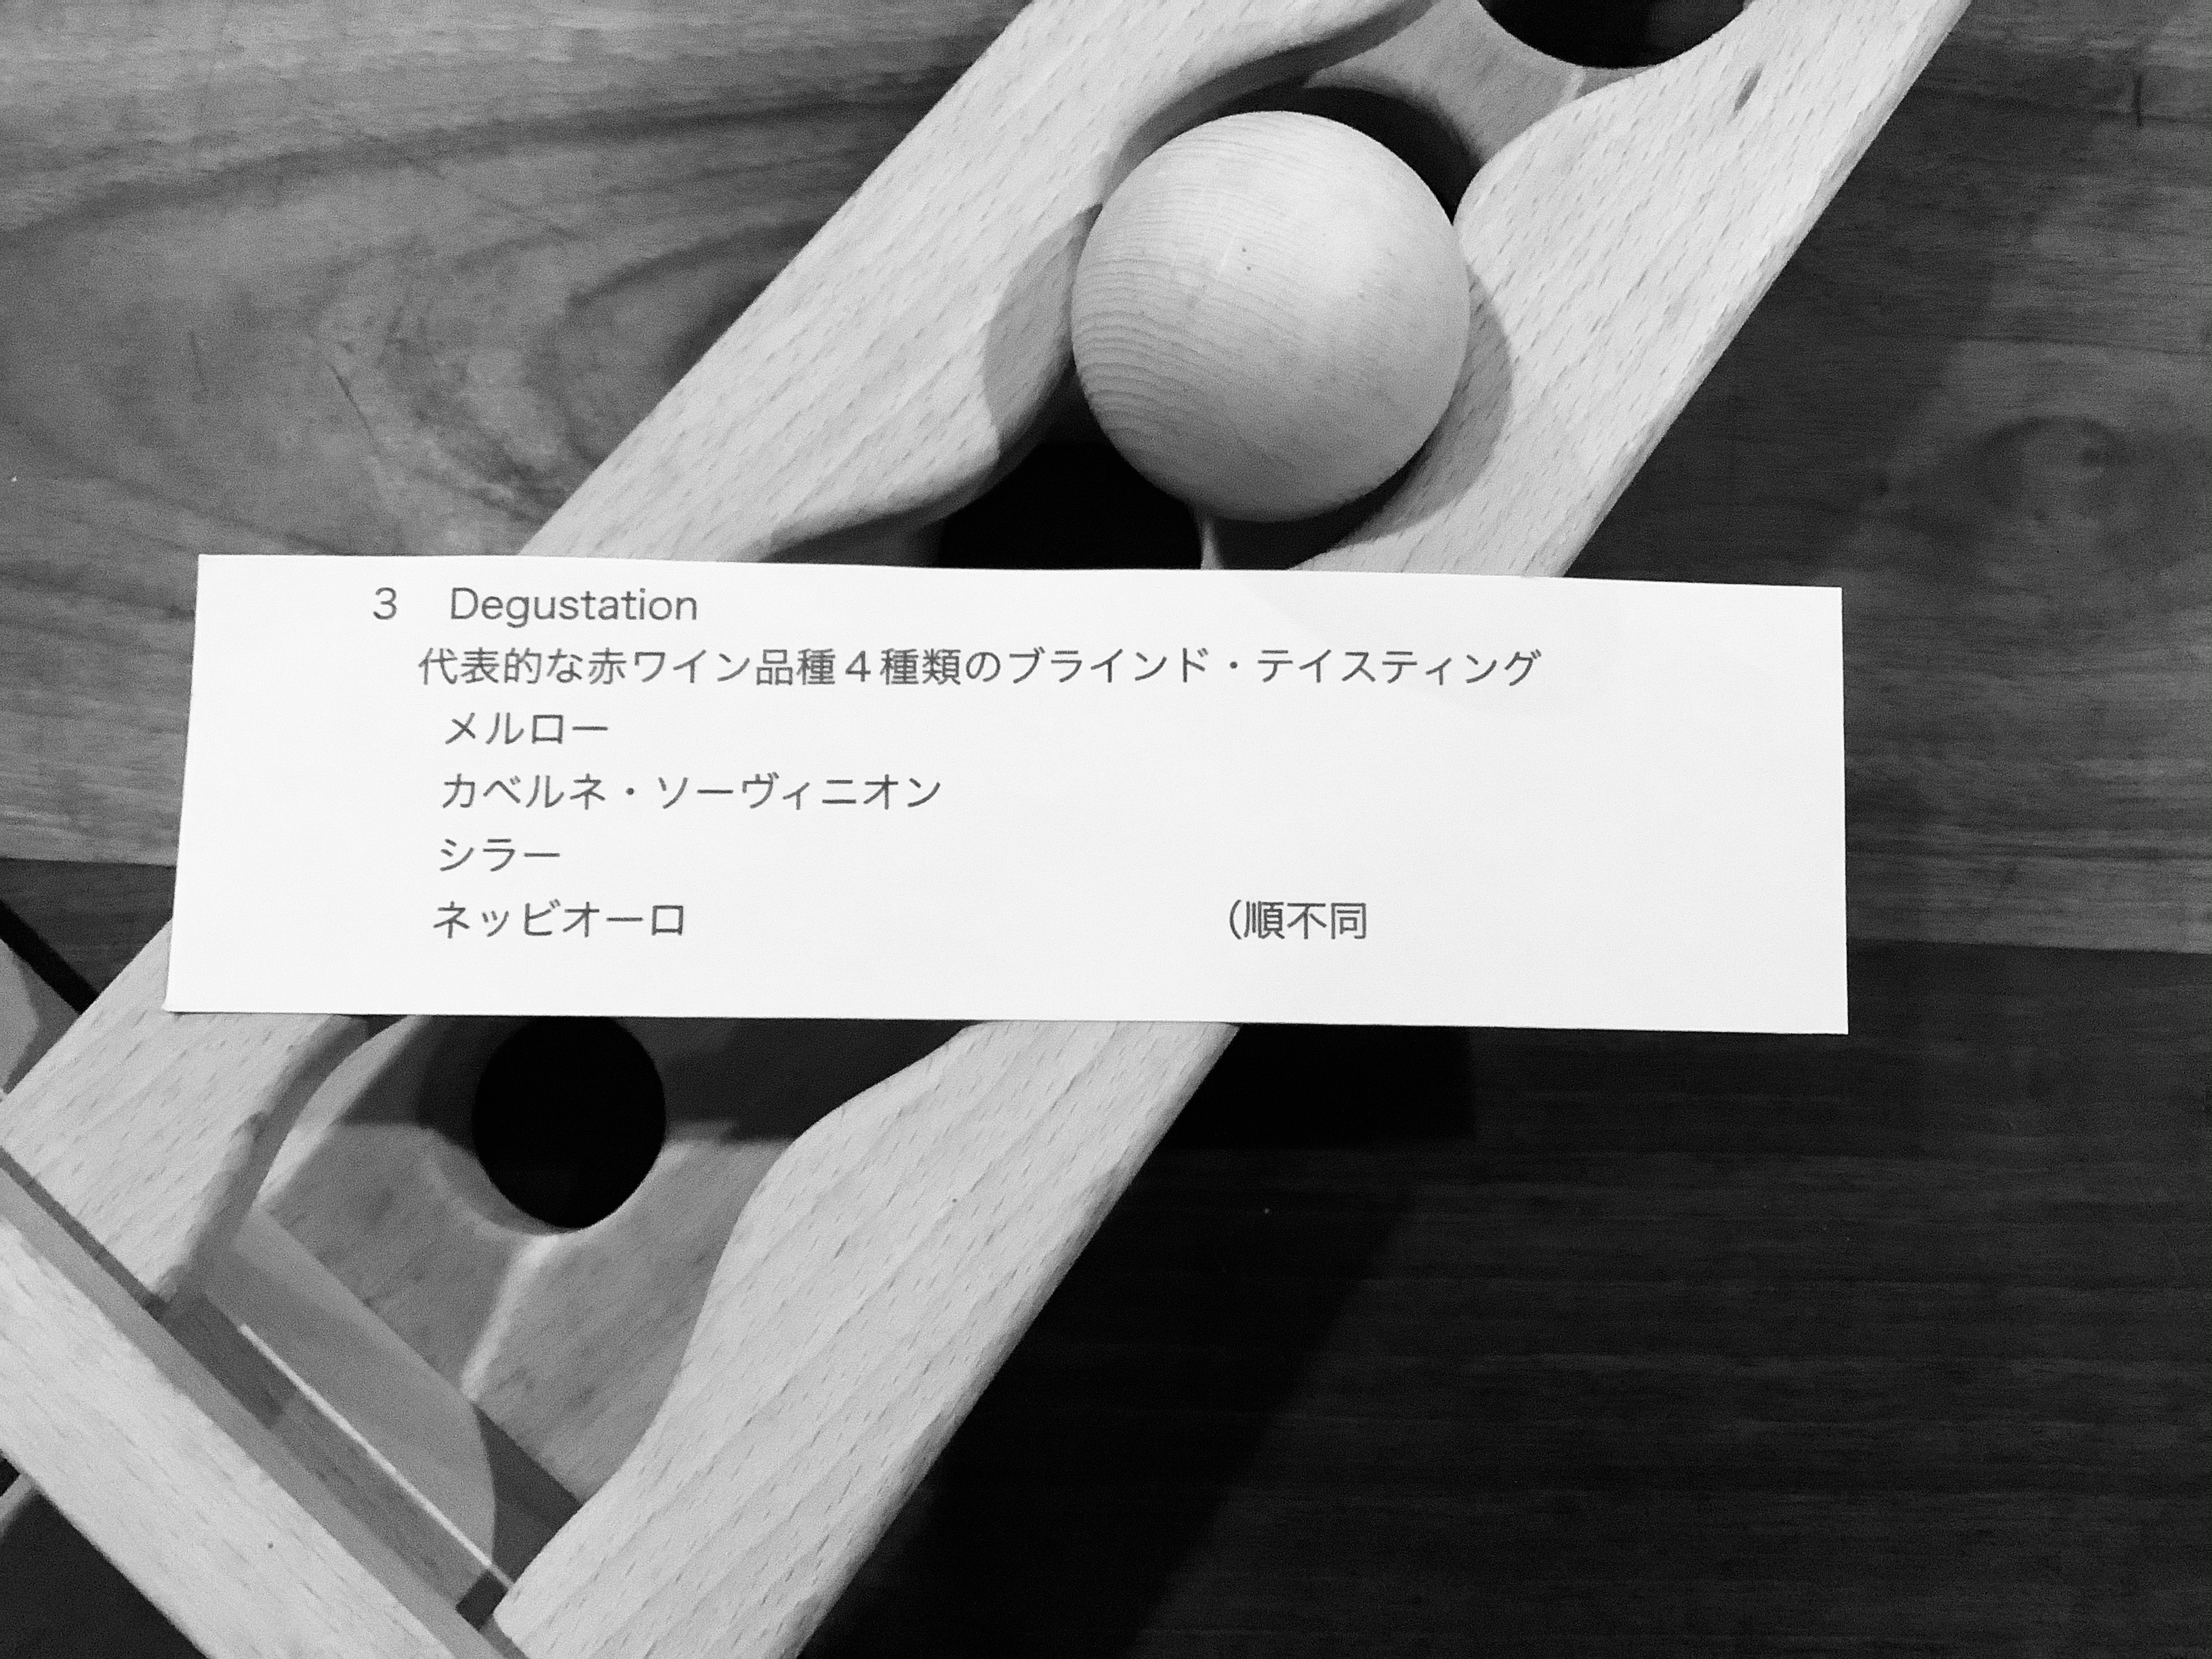 3　Degustation
代表的な赤ワイン品種４種類のブラインド・テイスティング
メルロー
カベルネ・ソーヴィニオン
シラー
ネッビオーロ　　　　　　　　　　　　　(順不同